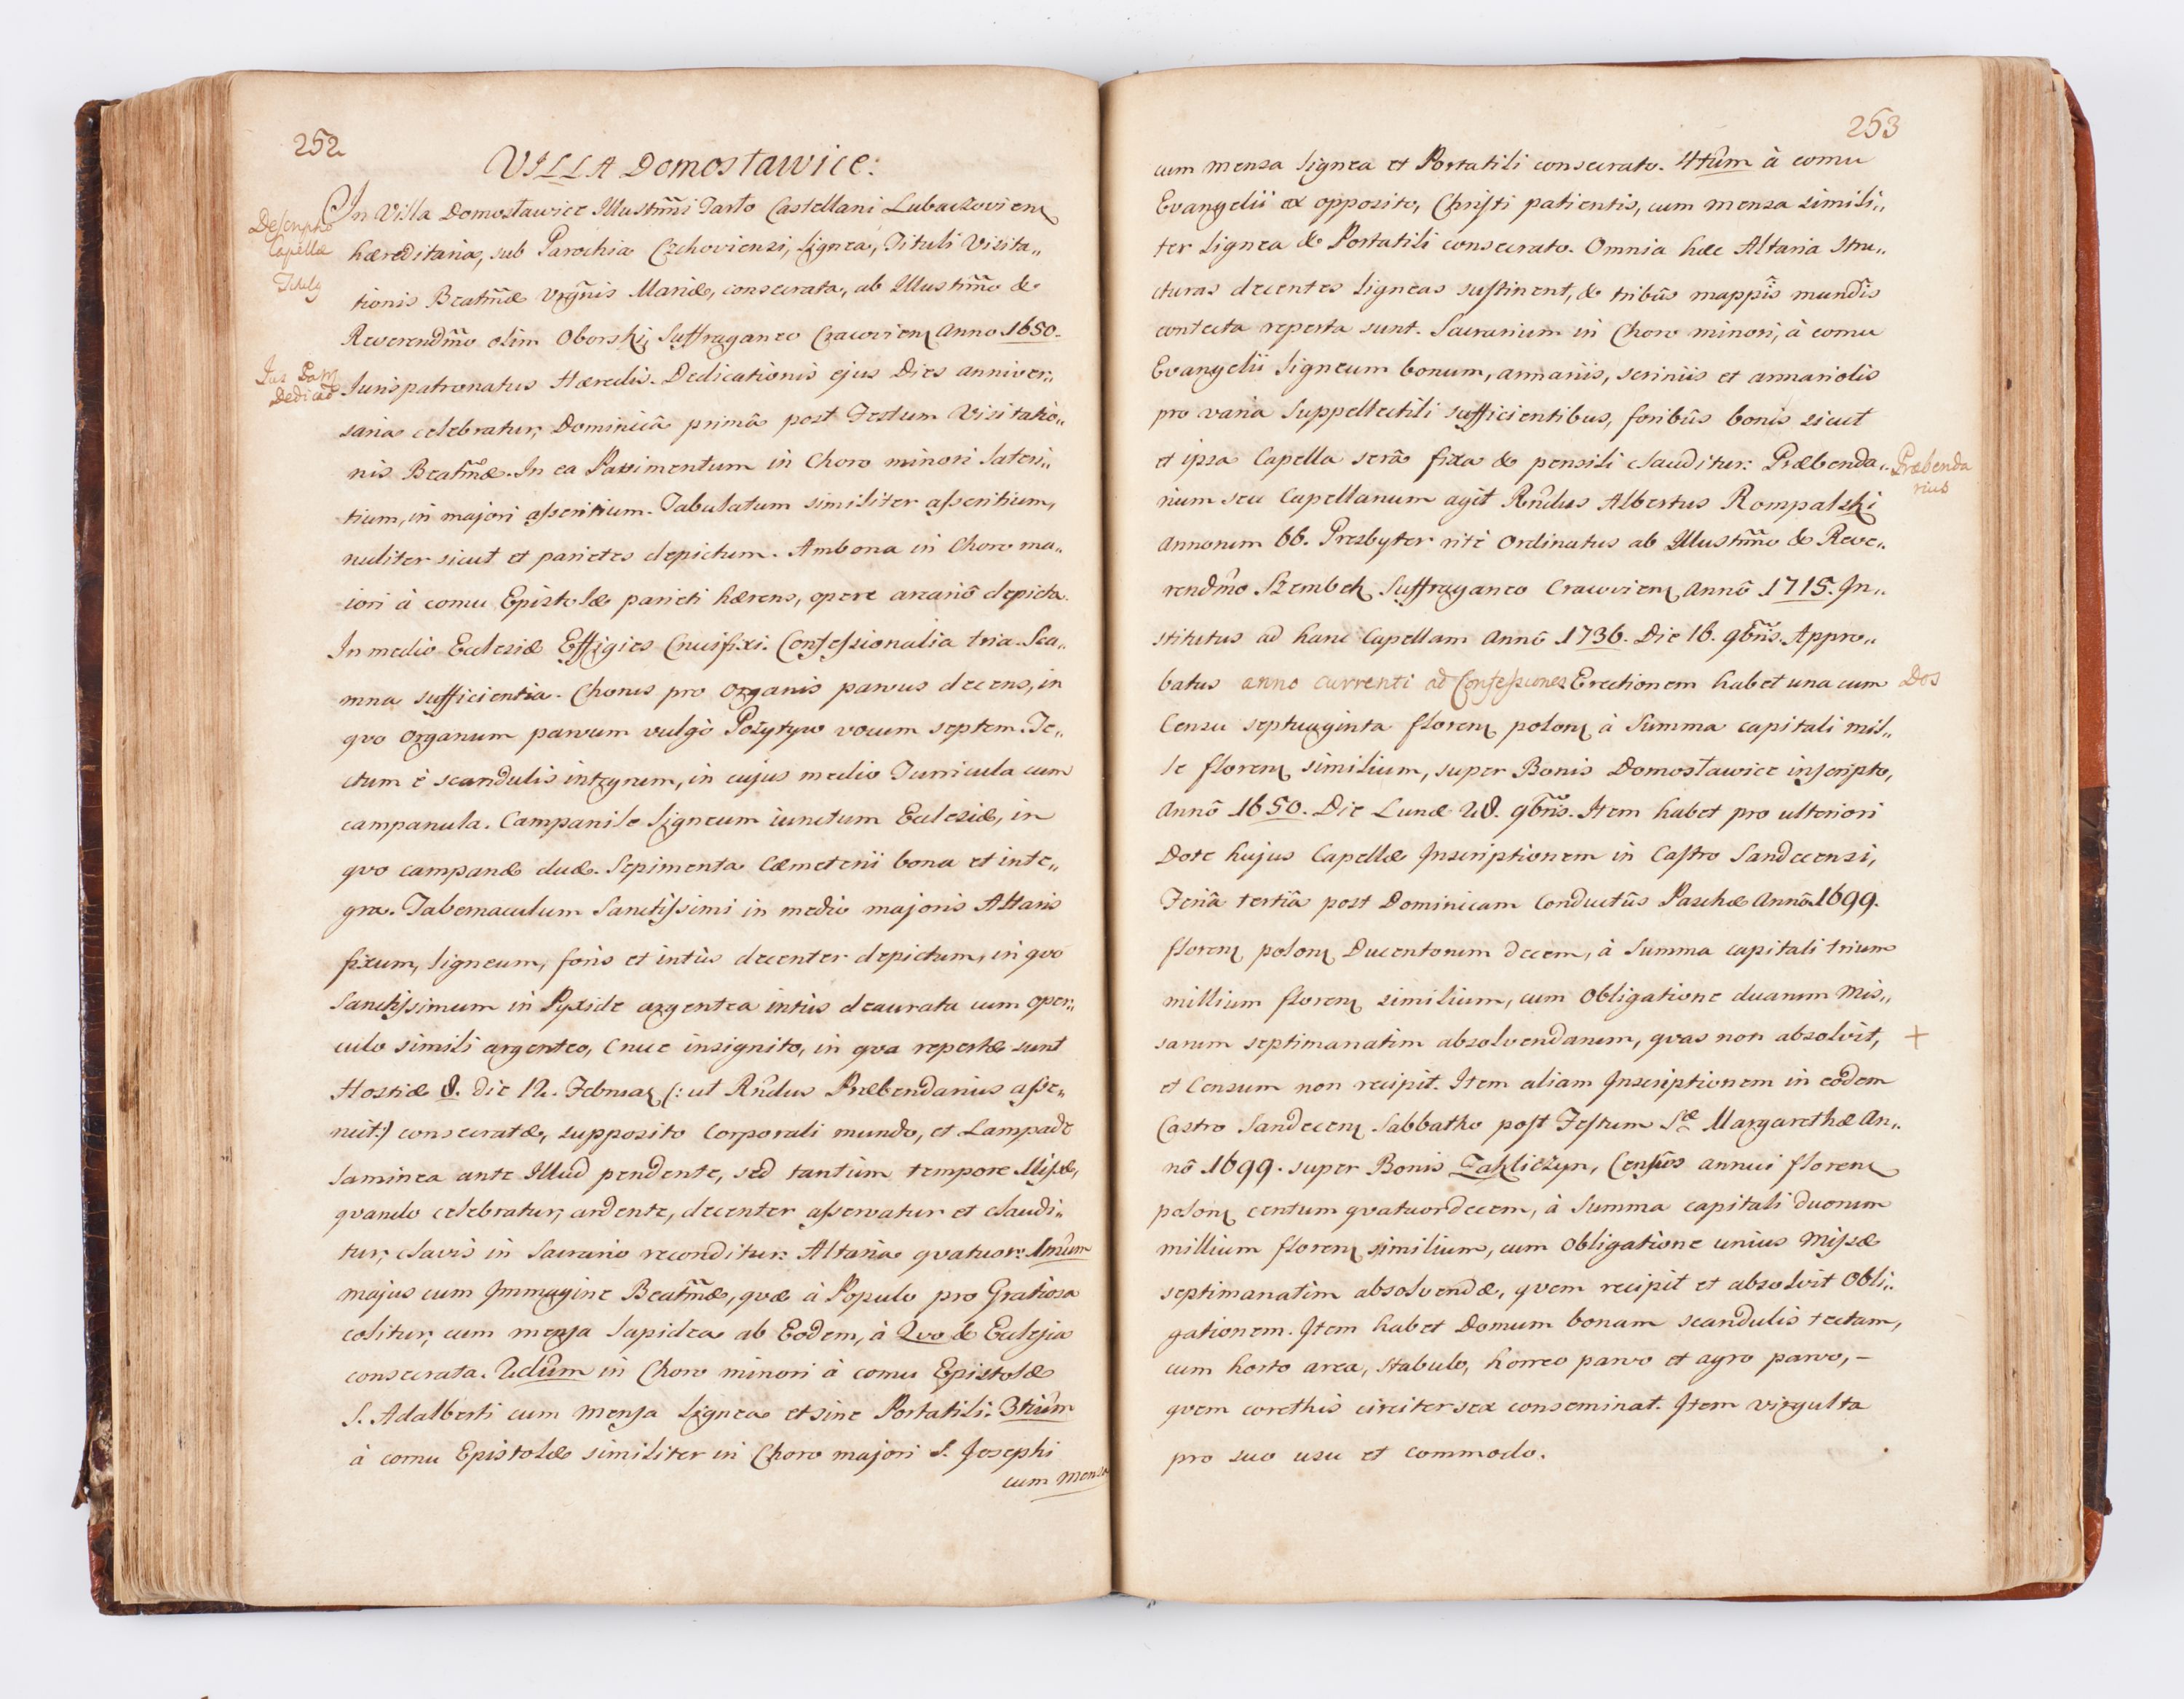 252
VILLA Domosławice.
Descriptio
Capellæ
Tituly
In Villa Domosławice Illustm̃i Tarło Castellani Lubaczovien
hæreditaria, sub Parochia Czchoviensi, lignea, Tituli Visita„
tionis Beatm̃æ Vrgñis Mariæ, consecrata, ab Illustm̃o &
Reverendm̃o olim Oborski, Suffraganeo Cracovien Anno 1650.
Jus Patr
Dedicao
Jurispatronatus Hæredis. Dedicationis ejus Dies anniver„
saria celebratur, Dominicâ primâ post Festum Visitatio„
nis Beatm̃æ. In ea Pavimentum in Choro minori lateri„
tium, in majori asseritium. Tabulatum similiter asseritium,
ruditer sicut et parietes depictum. Ambona in Choro ma„
iori à cornu Epistolæ parieti hærens, opere arcariô depicta.
In medio Ecclesiæ Effigies Crucifixi. Confessionalia tria. Sca„
mna sufficientia. Chorus pro Organis parvus decens, in
qvo Organum parvum vulgò Pozytyw vocum septem. Te„
ctum è scandulis integrum, in cujus medio Turricula cum
campanula. Campanile ligneum iunctum Ecclesiæ, in
qvo campanæ duæ. Sepimenta Cæmeterii bona et inte„
gra. Tabernaculum Sanctissimi in medio majoris Altaris
fixum, ligneum, foris et intùs decenter depictum, in qvo
Sanctissimum in Pyxide argentea intùs deaurata cum oper„
culo simili argenteo, Cruce insignito, in qva repertæ sunt
Hostiæ 8. die 12. Februar (: ut Rndus Præbendarius asse„
ruit:) consecratæ, supposito Corporali mundo, et Lampade
laminea ante Illud pendente, sed tantùm tempore Missæ,
qvando celebratur, ardente, decenter asservatur et claudi„
tur, clavis in Sacrario reconditur. Altaria qvatuor: 1mum
majus cum Immagine Beatm̃æ, qvæ à Populo pro Gratiosa
colitur, cum mensa lapidea ab Eodem, à Qvo & Ecclesia
consecrata. 2dum in Choro minori à cornu Epistolæ
S. Adalberti cum Mensa lignea et sine Portatili. 3tium
à cornu Epistolæ similiter in Choro majori S. Josephi
cum Mensa
253
cum Mensa lignea et Portatili consecrato. 4tum à cornu
Evangelii ex opposito, Christi patientis, cum mensa simili„
ter lignea & Portatili consecrato. Omnia hæc Altaria Stru„
cturas decentes ligneas sustinent, & tribûs mappis mundis
contecta reperta sunt. Sacrarium in Choro minori, à cornu
Evangelii ligneum bonum, armariis, scriniis et armariolis
pro varia Suppellectili sufficientibus, foribûs bonis sicut
et ipsa Capella serâ fixa & pensili clauditur. Præbenda„
Præbenda
rius
rium seu Capellanum agit Rndus Albertus Rompalski
Annorum 66. Presbyter ritè Ordinatus ab Illustm̃o & Reve„
rendm̃o Szembek Suffraganeo Cracovien Annô 1715. In„
stitutus ad hanc Capellam Annô 1736. Die 16. 9bris. Appro„
batus anno currenti ad Confessiones Erectionem habet una cum
Dos
Censu septuaginta floren polon à Summa capitali mil„
le floren similium, super Bonis Domosławice inscripto,
Annô 1650. Die Lunæ 28. 9bris. Item habet pro ulteriori
Dote hujus Capellæ Inscriptionem in Castro Sandecensi,
Feriâ tertiâ post Dominicam Conductûs Paschæ Annô 1699.
floren polon Ducentorum decem, à Summa capitali trium
millium floren similium, cum Obligatione duarum Mis„
sarum septimanatim absolvendarum, qvas non absolvit,
+
et Censum non recipit. Item aliam Inscriptionem in eodem
Castro Sandecen Sabbatho post Festum Sæ Margarethæ An„
nô 1699. super Bonis Zakliczyn, Censûs annui floren
polon centum qvatuordecem, à Summa capitali duorum
millium floren similium, cum Obligatione unius Missæ
septimanatim absolvendæ, qvem recipit et absolvit Obli„
gationem. Item habet Domum bonam scandulis tectam,
cum horto area, stabulo, horreo parvo et agro parvo, –
qvem corethis circiter sex conseminat. Item virgulta
pro suo usu et commodo.